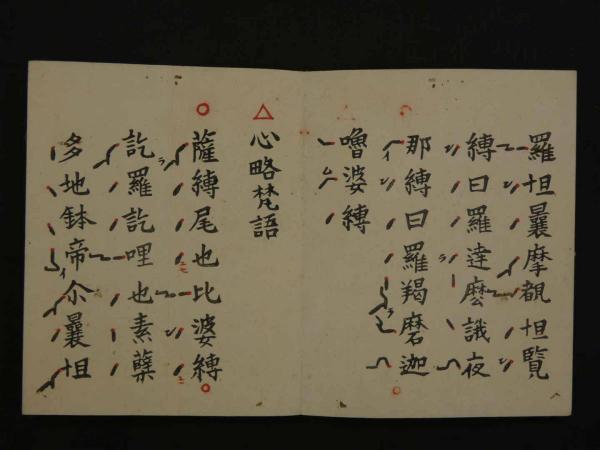 羅怛曩摩覩怛覽
縛曰羅達麽誐夜
那縛曰羅羯磨迦
嚕婆縛
心略梵語
薩縛尾也比婆縛
訖羅訖哩也素蘖
多地鉢帝尒曩怛